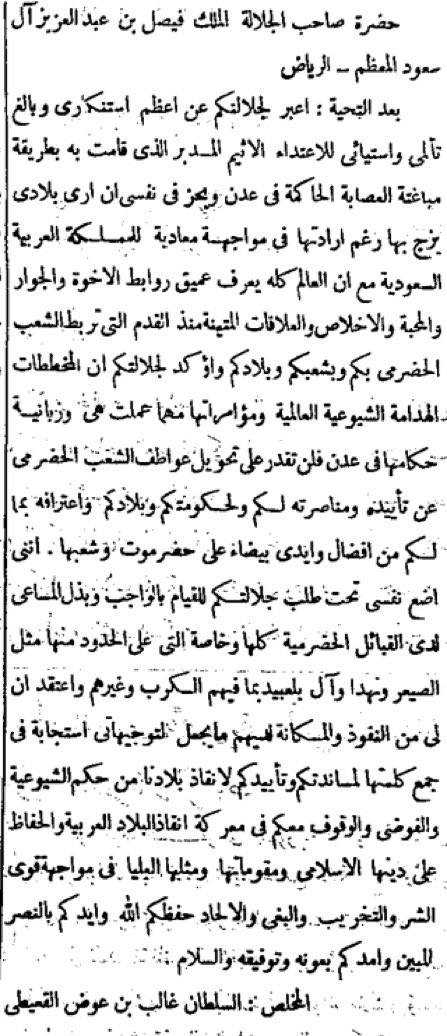 حضرة صاحب الجلالة الملك فيصل بن عبد العزيز آل
سعود المعظم – الرياض
بعد التحية : اعبر لجلالتكم عن اعظم استنكارى وبالغ
تألمى واستيائى للاعتداء الاثيم المدبر الذى قامت به بطريقة
مباغتة العصابة الحاكمة فى عدن ويحز فى نفسى ان ارى بلادى
يزج بها رغم ارادتها فى مواجهة معادية للمملكة العربية
السعودية مع ان العالم كله يعرف عميق روابط الاخوة والجوار
والمحبة والاخلاص والعلاقات المتينة منذ القدم التى تربط الشعب
الحضرمى بكم وبشعبكم وبلادكم واؤكد لجلالتكم ان المخططات
الهدامة الشيوعية العالمية ومؤامراتها مهما عملت هى وزبانية
حكامها فى عدن فلن تقدر على تحويل عواطف الشعب الحضرمى
عن تأييده ومناصرته لكم ولحكومتكم وبلادكم واعترافه بما
لكم من افضال وايدى بيضاء على حضرموت وشعبها . اننى
اضع نفسى تحت طلب جلالتكم للقيام بالواجب وبذل المساعى
لدى القبائل الحضرمية كلها وخاصة التى على الحدود منها مثل
الصيعر ونهدا وآل بلعبيد بما فيهم الكرب وغيرهم واعتقد ان
لى من النفوذ والمكانة لديهم مايجعل لتوجيهاتى استجابة فى
جمع كلمتها لمساندتكم وتأييدكم لانقاذ بلادنا من حكم الشيوعية
والفوضى والوقوف معكم فى معركة انقاذ البلاد العربية والحفاظ
على دينها الاسلامى ومقوماتها ومثلها العليا فى مواجهة قوى
الشر والتخريب والبغى والالحاد حفظكم الله وايدكم بالنصر
المبين وامدكم بعونه وتوفيقه والسلام .
المخلص : السلطان غالب بن عوض القعيطى